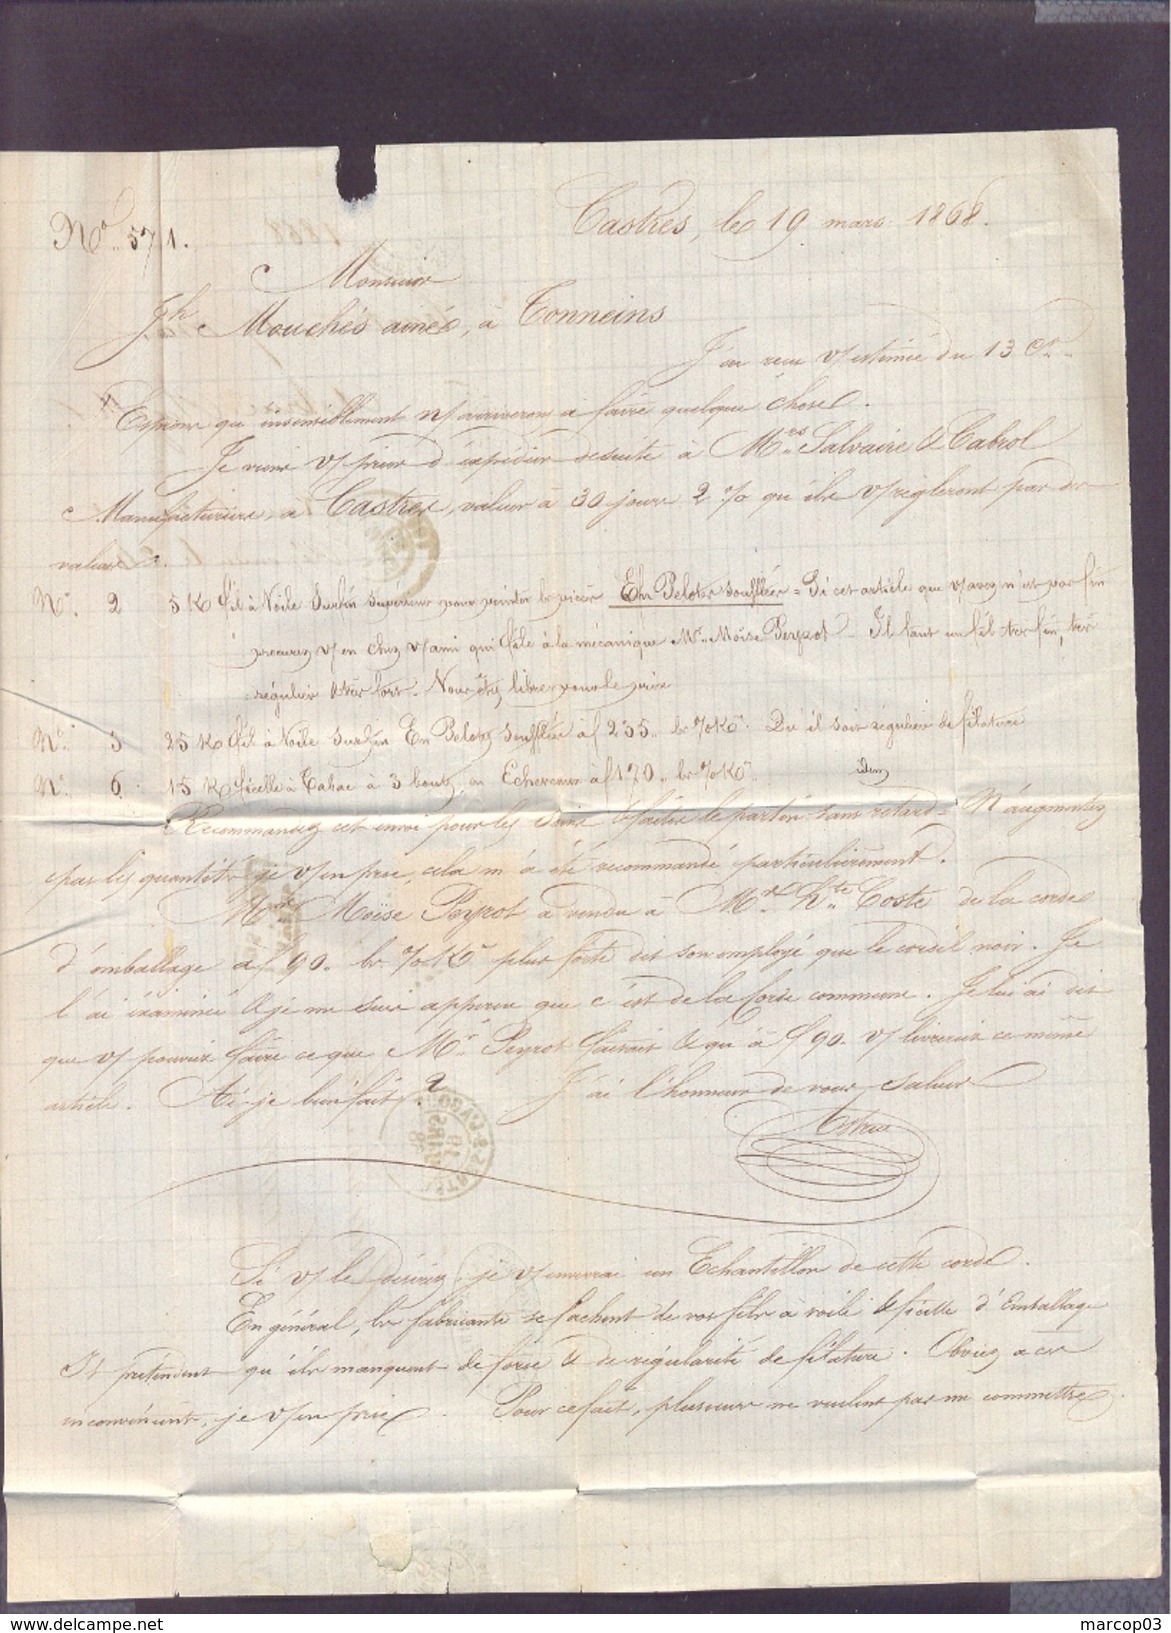 Castres, le 19 mars 1868.
No. 571.
Monsieur
Jh Mouchés ainé, à Tonneins
J'ai reçu v/estimée du 13 Ct.
Espérons qu'insensiblement n/arriverons à faire quelque chose.
Je viens v/prier d'expédier desuite à Mrs. Salvaire & Cabrol
Manufacturiers, à Castres, valeur à 30 jours 2 % qu'ils v/règleront par des
valeurs.
No. 2 5 K fil à Voile Surfin Supérieur pour pointer les pièces En Pelotes soufflées = Si cet article que v/avez n'est pas fin
procurez v/en chez v/ami qui file à la mécanique Mr. Moïse Peyrot. Il faut un fil très fin, très
régulier & très fort. Vous êtes libre pour le prix
No. 3 25 Ko fil à Voile Surfin En Pelotes Soufflées à f 235.. les %Ko. Qu'il soit régulier de filature
No. 6 15 K ficelle à Tabac à 3 bouts, en Echeveaux à f 170.. les %Ko. idem
Recommandez cet envoi pour les soins & faites le partir sans retard = N'augmentez
pas les quantités je v/en prie, cela m'a été recommandé particulièrement.
Mr. Moïse Peyrot a vendu à Mr. Hte Coste de la corde
d'emballage à f 90. les %Ko plus forte dit son employé que le cordeil noir. Je
l'ai examinée & je me suis apperçu que c'est de la corde commune. Je lui ai dit
que v/ pouviez faire ce que Mr. Peyrot faisait & qu'à f 90. v/ livreriez ce même
article. Ai-je bien fait ? J'ai l'honneur de vous saluer
Si v/ le désirez, je v/enverrai un Echantillon de cette corde.
En général, les fabricants se fachent de vos fils à voile & ficelle d'Emballage
Ils prétendent qu'ils manquent de force & de régularité de filature. Obviez à ces
inconvénients, je v/en prie. Pour ce fait, plusieurs ne veulent pas me commettre.
marcop03